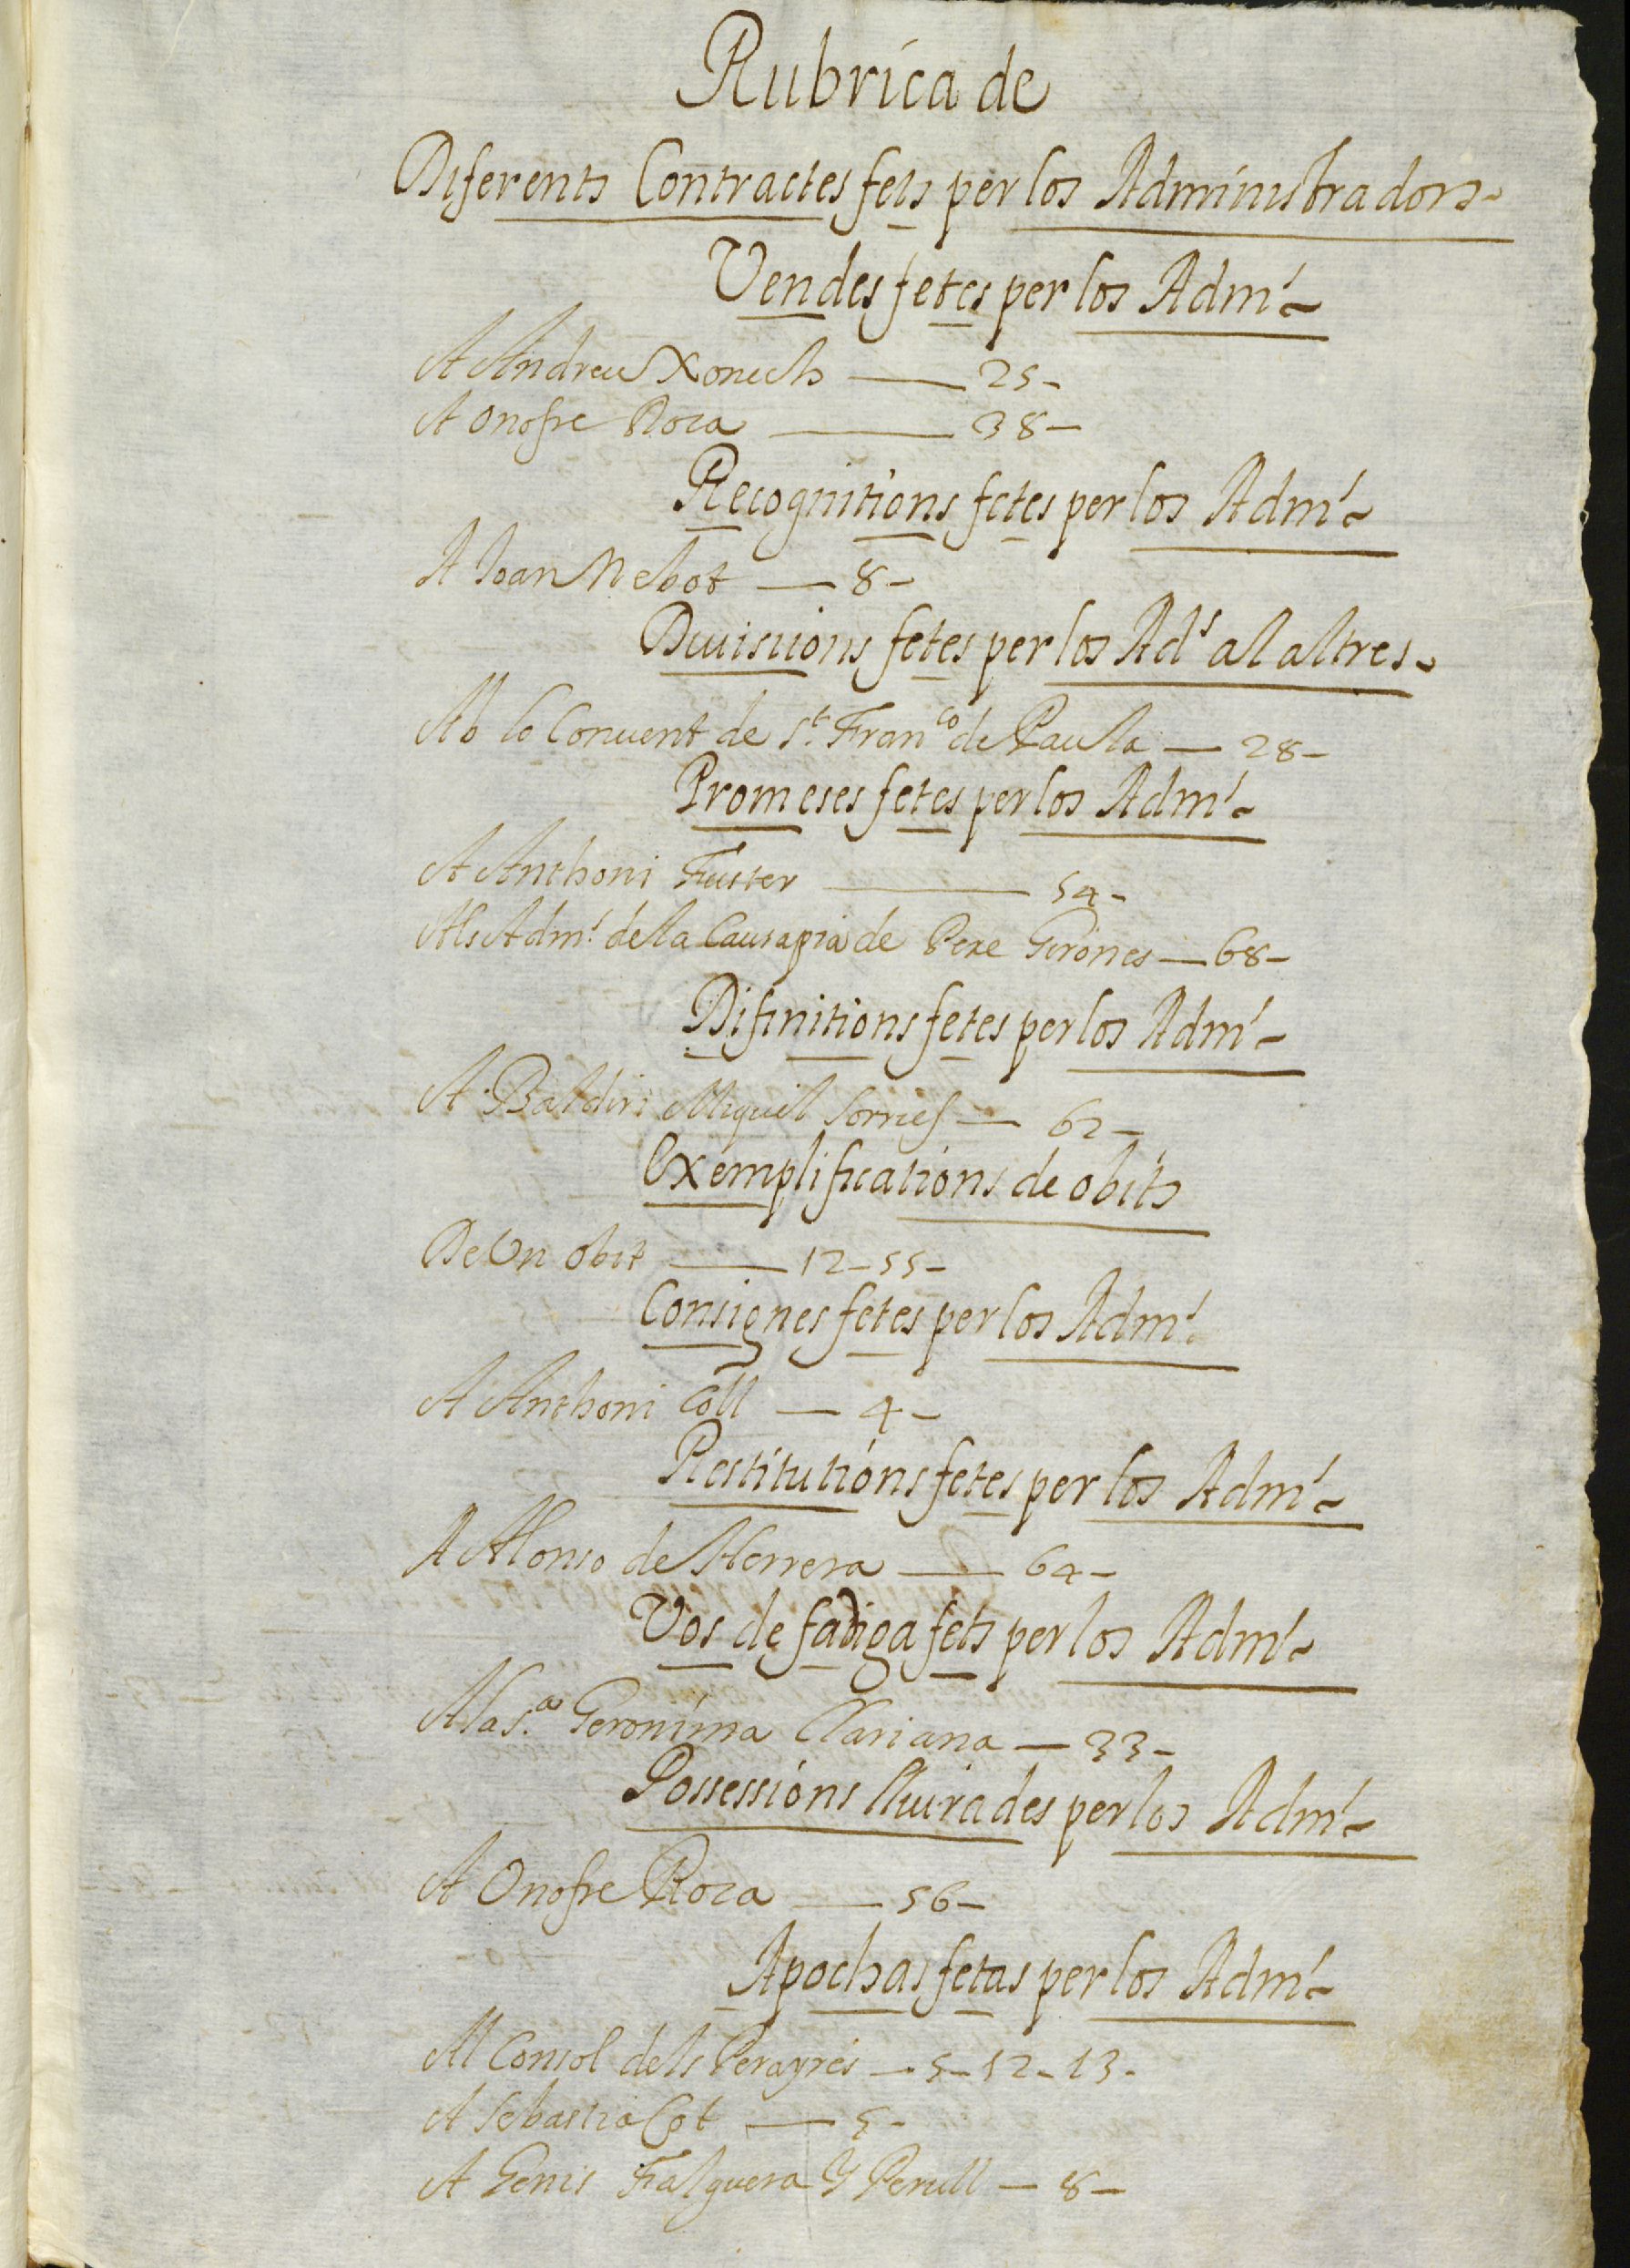 Rubrica de
Diferents Contractes fets per los Administradors
Vendes fetes per los Adm.s
A Andreu Xonech — 25 -
A Onofre Roca — 38 -
Recognitions fetes per los Adm.s
A Joan Nebot — 8 -
Diuisiions fetes per los Ad.s al altres
Ab lo Conuent de S.t Fran.co de Paula — 28 -
Promeses fetes per los Adm.s
A Anthoni Fuster — 54 -
Als Adm.s de la Causapia de Pere Gironès — 68 -
Difinitions fetes per los Adm.s
A Baldiri Miquel Sorries — 62 -
Exemplifications de obits
De Un obit — 12 - 55 -
Consignes fetes per los Adm.s
A Anthoni Coll — 4 -
Restitutions fetes per los Adm.s
A Alonso de Herrera — 64 -
Vos de fadiga fets per los Adm.s
A la S.a Geronima Clariana — 33 -
Possessions lliurades per los Adm.s
A Onofre Roca — 56 -
Apochas fetas per los Adm.s
Al Consol dels Perayres — 5 - 12 - 13 -
A Sebastia Cot — 5 -
A Genis Falguera Y Perull — 8 -